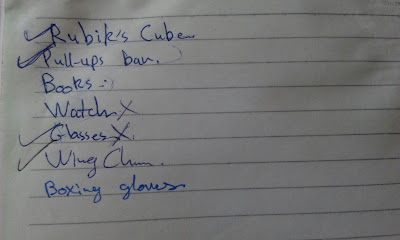 ✓ Rubik's Cube
✓ Pull-ups bar.
Books :-
Watch X
✓ Glasses X.
✓ Wing Chun.
Boxing gloves